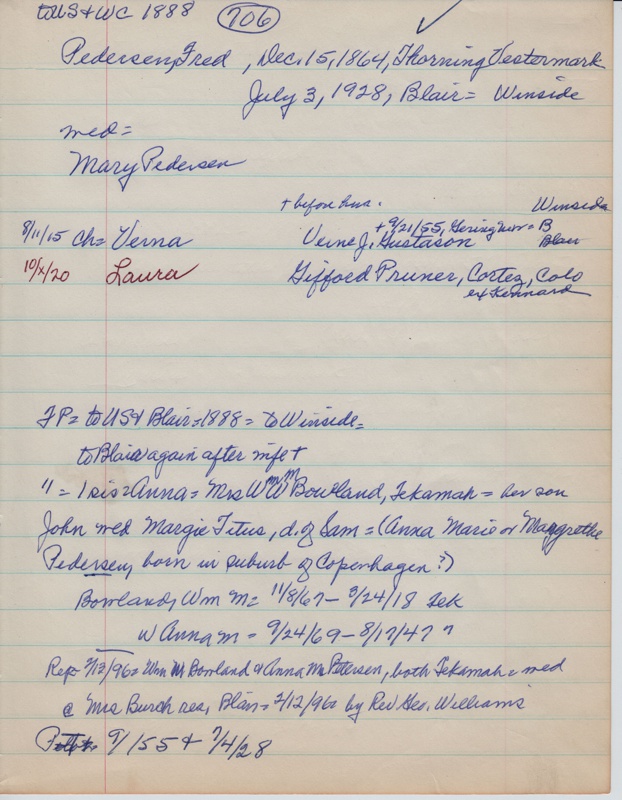 to US & WC 1888 706 ✓
Pedersen, Fred, Dec. 15, 1864, Thorning Vestermark
July 3, 1928, Blair = Winside
wed =
Mary Pedersen
+ before hus. Winside
8/11/15 ch = Verna Verne J. Gustason + 9/21/55, Gering now = B
Blair
10/x/20 Laura Gifford Pruner, Cortez, Colo
ex Kennard
FP = to US & Blair = 1888 = to Winside =
to Blair again after wife +
" = 1 sis = Anna = Mrs Wm M Bowland, Tekamah = her son
John wed Margie Titus, d. of Sam = (Anna Marie or Margrethe
Pedersen, born in suburb of Copenhagen?)
Bowland, Wm M = 11/8/67 - 3/24/18 Tek
w Anna m = 9/24/69 - 8/17/47 "
Rep = 2/13/96 = Wm M Bowland & Anna M Petersen, both Tekamah = wed
@ Mrs Burch res, Blair = 2/12/96 = by Rev Geo. Williams
9/155 & 7/4/28